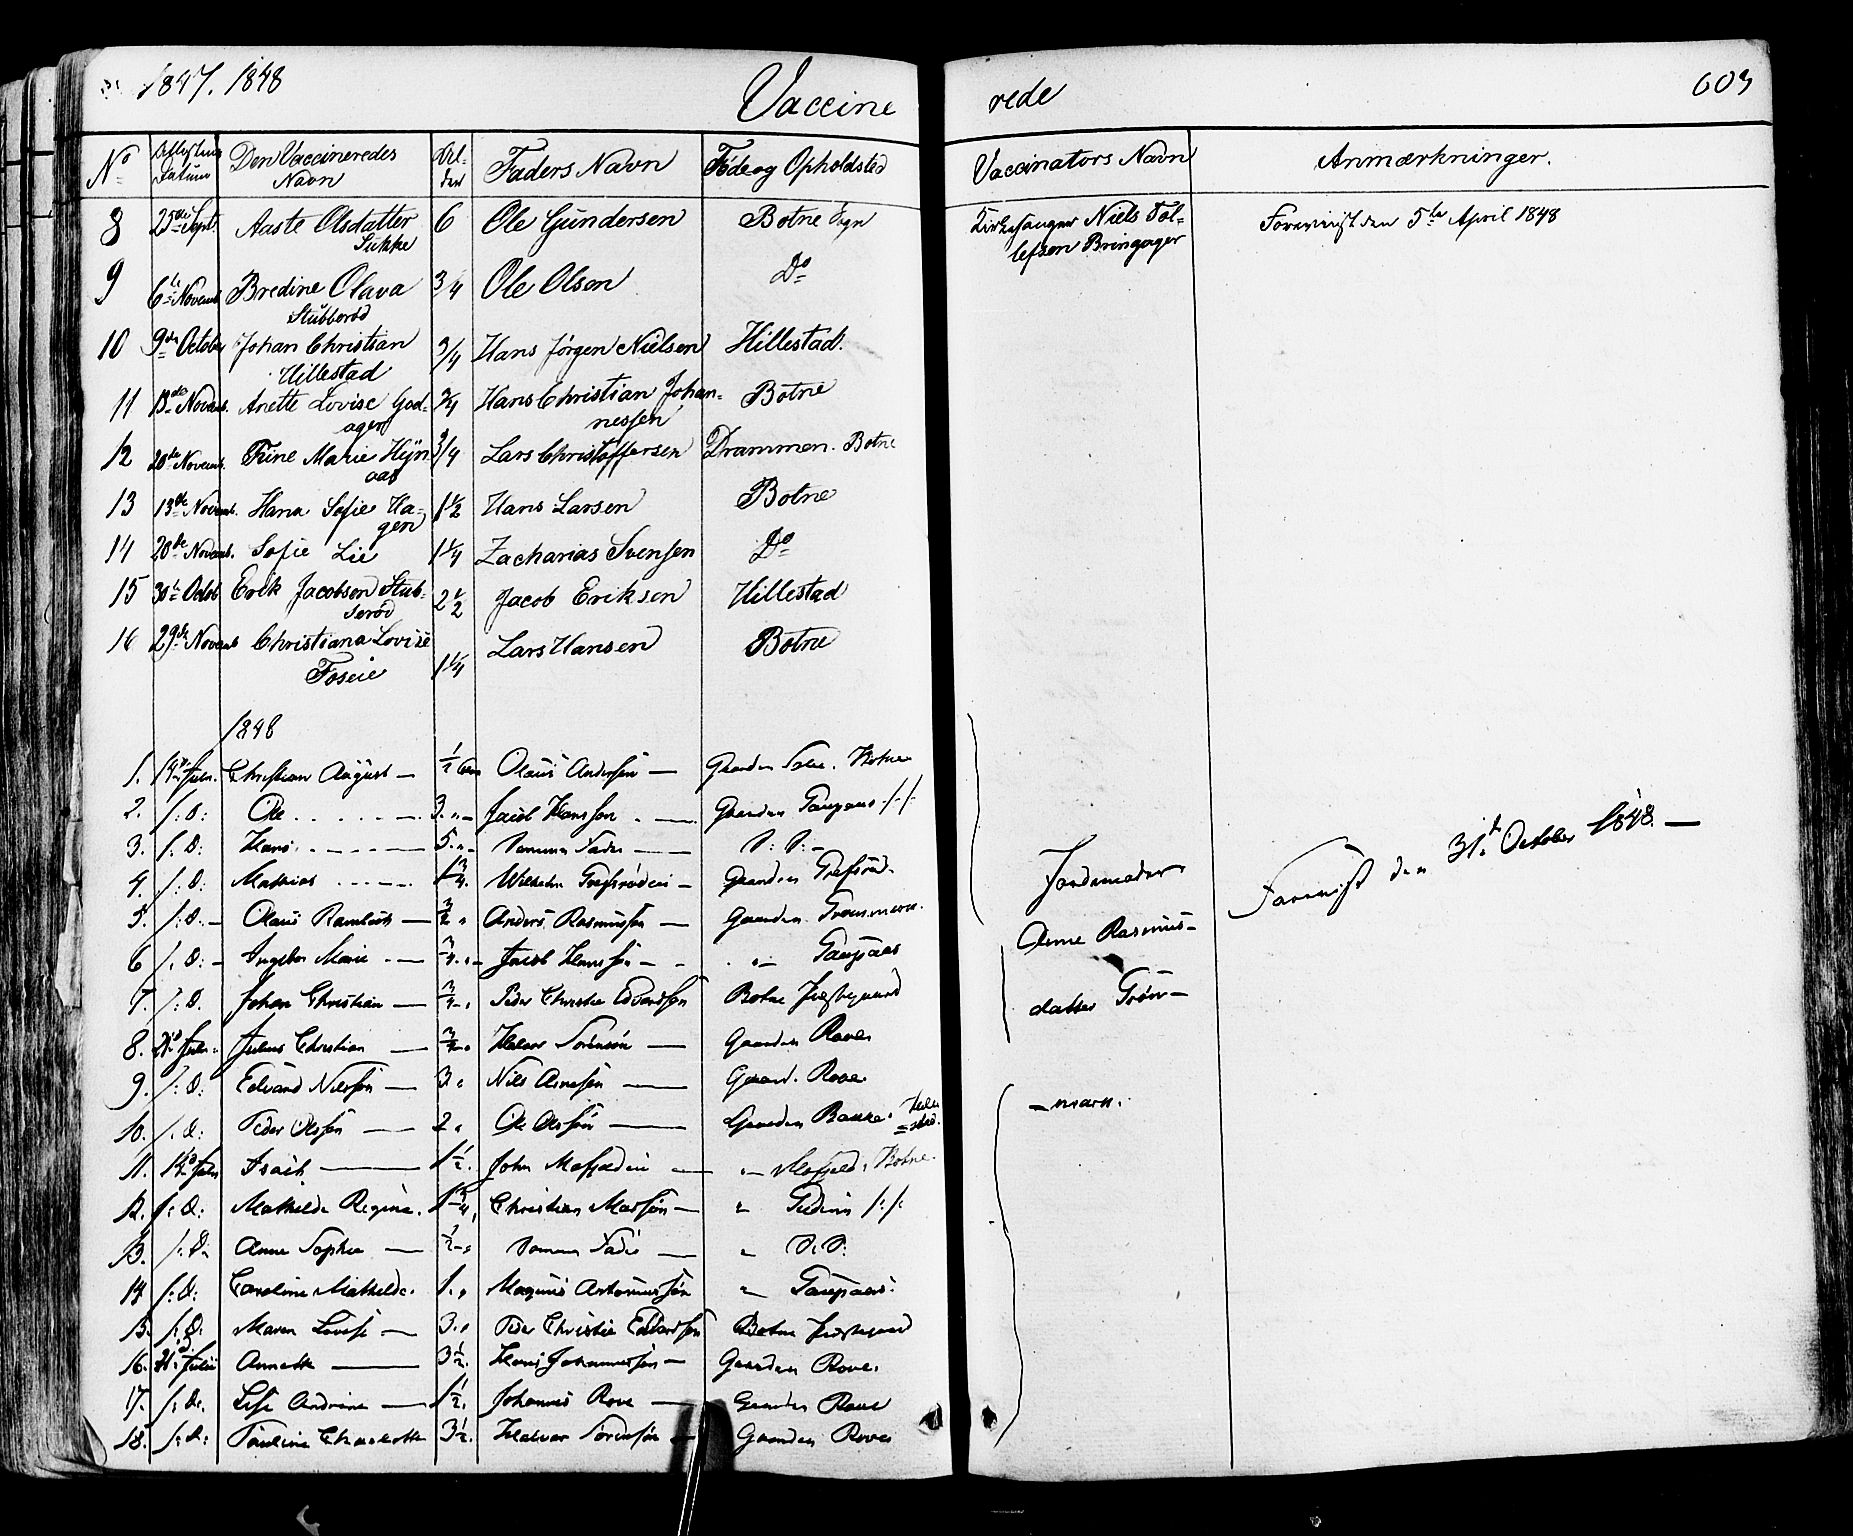 1847. 1848 Vaccinerede 603
No Attestens Datum Den Vaccineredes Navn Alder Faders Navn Føde og Opholdsted Vaccinators Navn Anmærkninger.
8 25de Sept. Aaste Olsdatter 6 Ole Gundersen Botne Sogn Kirkesanger Niels Tol- Foreviist den 5te April 1848
Sukke lefsen Bringager
9 6te Novemb. Bredine Olava 3/4 Ole Olsen Do
Stubberød
10 9de October Johan Christian 3/4 Hans Jørgen Nielsen Hillestad.
Hillestad
11 13de Novemb. Anette Lovise God- 3/4 Hans Christian Johan- Botne
ager nessen
12 20de Novemb. Trine Marie 3/4 Lars Christoffersen Drammen. Botne
aas
13 13de Novemb. Hana Sofie Ha- 1 1/2 Hans Larsen Botne
gen
14 20de Novemb. Sofie Lie 1 1/4 Zacharias Svensen Do
15 30te Octob Erik Jacobsen Stub- 2 1/2 Jacob Eriksen Hillestad
berød
16 29de Novemb Christiana Lovise Lars Hansen Botne
Foseie 1 1/4
1848
1. 14d Juln. Christian August — 1/2 Olaus Andersen — Gaarden Botne
2. /: D: Ole . . . . . 3. „ — Jacob Hansson . — Gaarden Taupaas /:/:
3. /: D: Hans. . — — — 5. „ - Samme Fader — D: D: —
4. /: D: Mathias . . . — . 1 3/4. Wilhelm Grefsrødeie — Gaarden Grefsrød.
5. /: D. — Olaus — 3/4 „ Anders Rasmussen — Gaarden
6 /: D: — Ingebor Marie . — 3/4. „ — Jacob Hanssøn — . „ — Taupaas
7. /: D. Johan Christian — 3/4. „ Peder Christie Edvardsen Botne Præstegaard
8. 21d Juln. Julius Christian — 3/4. „ Halvor Sørensøn — Gaarden Rove.
9. /: D: Edvard Nilssøn — 3. „ Nils Arnesen — Gaard. Rove.
10. /: D: Peder Olssøn — 2 „ Ole Olssøn — Gaarden Bakke.
11. Juln Isach — 1 1/2. John — „ — Botne.
12. /: D: Mathilde Regine. 1 3/4, Christian Madsøn — „ /:/:
13. /: D. Anne Sophie — 1/2 — „ Samme Fader — „ D: D:
14 /: D: Caroline Mathilde. 1. „ Magnus Antoniussøn „ — Taupaas.
15. /: D. Maren Lovise — 3. „ Peder Christie Edvardsen Botne Præstegaard
16. 21d Julii Annette — 3 1/2. Hans Johannessøn — Gaarden Rove.
17. /: D. Lise Andrine — 1 1/2. Johannes Rove — Gaarden Rove
18. /: D: Pauline Charlotte 3 1/2. Halvor Sørensøn — Gaarden Rove
Jordemoder
Anne Rasmus-
datter Grøn-
— mark.
Foreviist den 31te October 1848. —